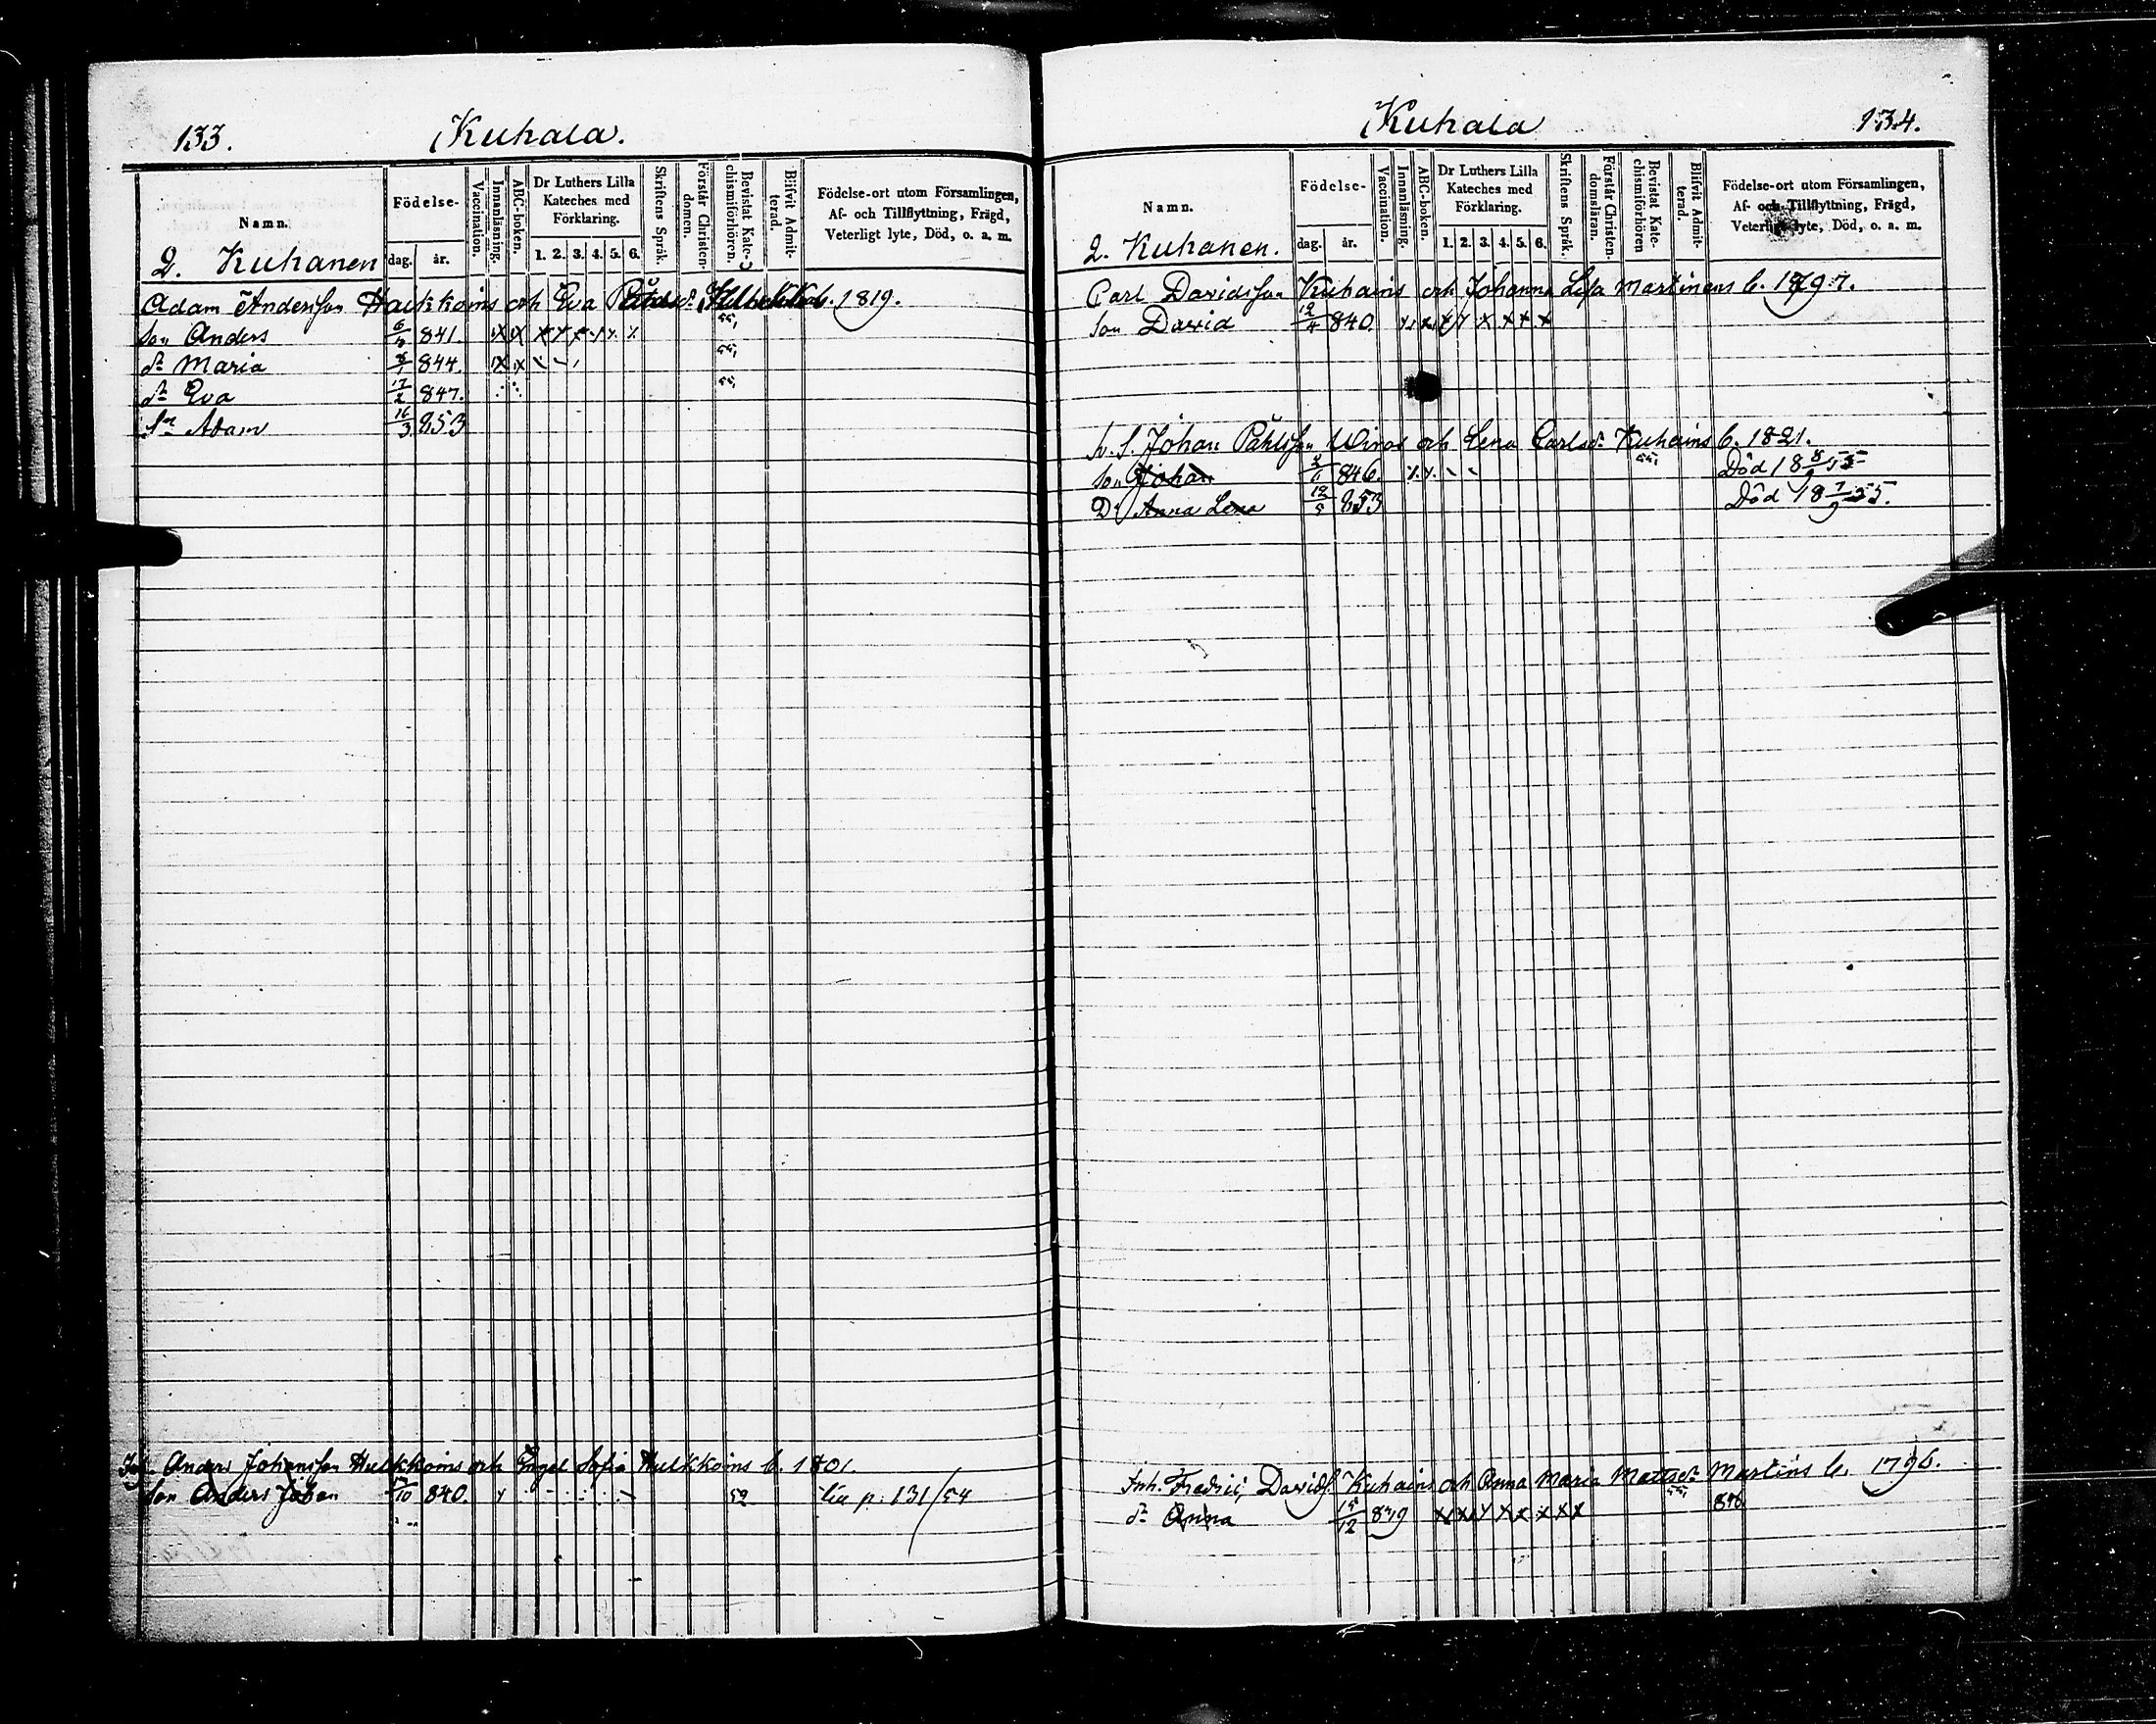 133.
Kuhala.
Namn.
Födelse-
dag. år.
Vaccination.
Innanläsning.
ABC-boken.
Dr Luthers Lilla
Kateches med
Förklaring.
1. 2. 3. 4. 5. 6.
Skriftens Språk.
Förstår Christen-
domen.
Bevistat Kate-
chismiförhören.
Blifvit Admit-
terad.
Födelse-ort utom Församlingen,
Af- och Tillflyttning, Frägd,
Veterligt lyte, Död, o. a. m.
2. Kuhanen
Adam Andersson och Eva 1819.
son Anders 841. 55,
dr Maria 844. 55,
dr Eva 17/2 847. 55,
Sn Adam 16/3 853
Anders Johansson Hulkkoins och Engel Sofia Hulkkoins b. 1801.
son Anders Johan 840. 59 p. 131/54
Kuhala
134.
Namn.
Födelse-
dag. år.
Vaccination.
Innanläsning.
ABC-boken.
Dr Luthers Lilla
Kateches med
Förklaring.
1. 2. 3. 4. 5. 6.
Skriftens Språk.
Förstår Christen-
domsläran.
Bevistat Kate-
chismiförhören
Blifvit Admit-
terad.
Födelse-ort utom Församlingen,
Af- och Tillflyttning, Frägd,
Veterligt lyte, Död, o. a. m.
2. Kuhanen.
Carl Davidsson Kuhains och Johanna Lisa Martinens b. 1797.
son David 12/4 840.
h. S. Johan Påhlsson och Lena Carlsdr Kuhains b. 1821.
son Johan 846. 55, Död
Dr Anna Lena 853 Död 18 7/9 55.
Inh. Fredric Davids. Kuhains och Anna Maria Mattsdr Martins b. 1796.
dr Anna 15/12 839 55,